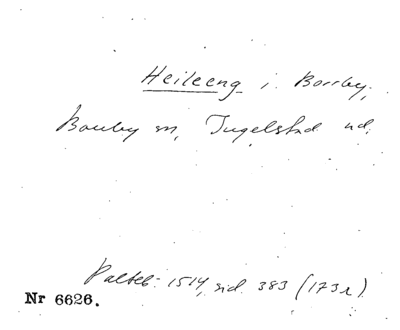 Heileeng i Borrby,
Borrby sn, Ingelstad hd.
Palteb. 1514, sid. 383 (173r).
Nr 6626.